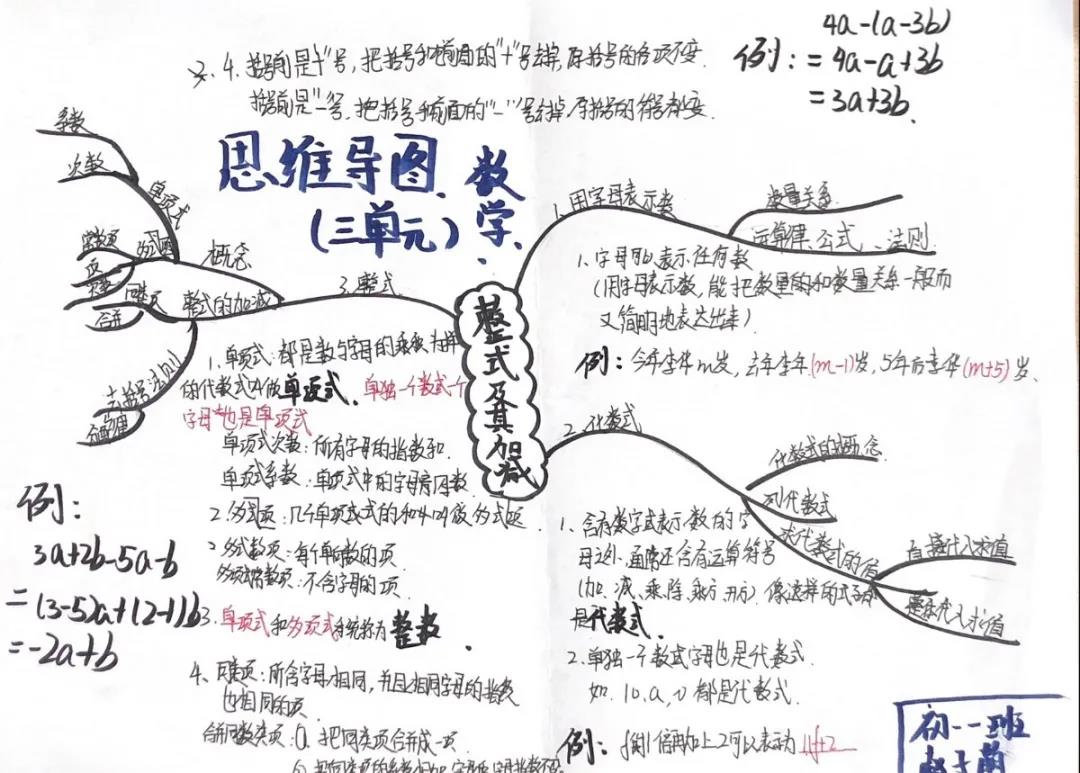 4. 括号前是"+"号,把括号和前面的"+"号去掉,原括号的各项不变.
括号前是"一"号,把括号和前面的"一"号去掉,原括号的符号都变.
4a-(a-3b)
例:=4a-a+3b
=3a+3b.
思维导图.数学.
(三单元)
整式及其加减
1.用字母表示数
数量关系
运算律、公式、法则
1、字母可以表示任何数
(用字母表示数,能把数量的和数量关系一般而
又简明地表达出来)
例:今年李华m岁,去年李华(m-1)岁,5年后李华(m+5)岁、
2.代数式
代数式的概念
列代数式
求代数式的值
直接代入求值
整体代入求值
1、含有数字式表示数的字
母之外,通常还含有运算符号
(加、减、乘、除、乘方、开方)像这样的式子
是代数式.
2.单独一个数式字母也是代数式.
如.10,a,
都是代数式.
例:
倍再加上2可以表示
3.整式
概念
单项式
系数
次数
整式的加减
同类项
合并
去括号法则
1、单项式:都是数与字母的乘
的代数式叫做单项式.单独一个数式一个
字母也是单项式
单项式次数:所有字母的指数和.
单项式系数:单项式中的字母前因数.
2.多项式:几个单项式的和叫做多
项:每个单
的项.
常数项:不含字母的项.
3.单项式和多项式统称为整数.
4、同类项:所含字母相同,并且相同字母的指数
也相同的项.
合并同类项:
把同类项合并成一项.
例:
3a+2b-5a-b
=(3-5)a+(2-1)b
=-2a+b
初一一班